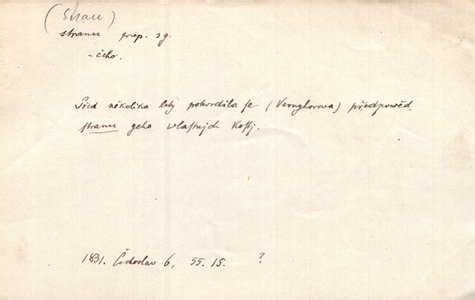 (stran)
stranu prep. s g.
- čeho.
Před několika lety potvrdila se (Vernyhorova) předpowěď
stranu geho vlastných Kostj.
1831. Čechoslav 6, 55. 15. ?